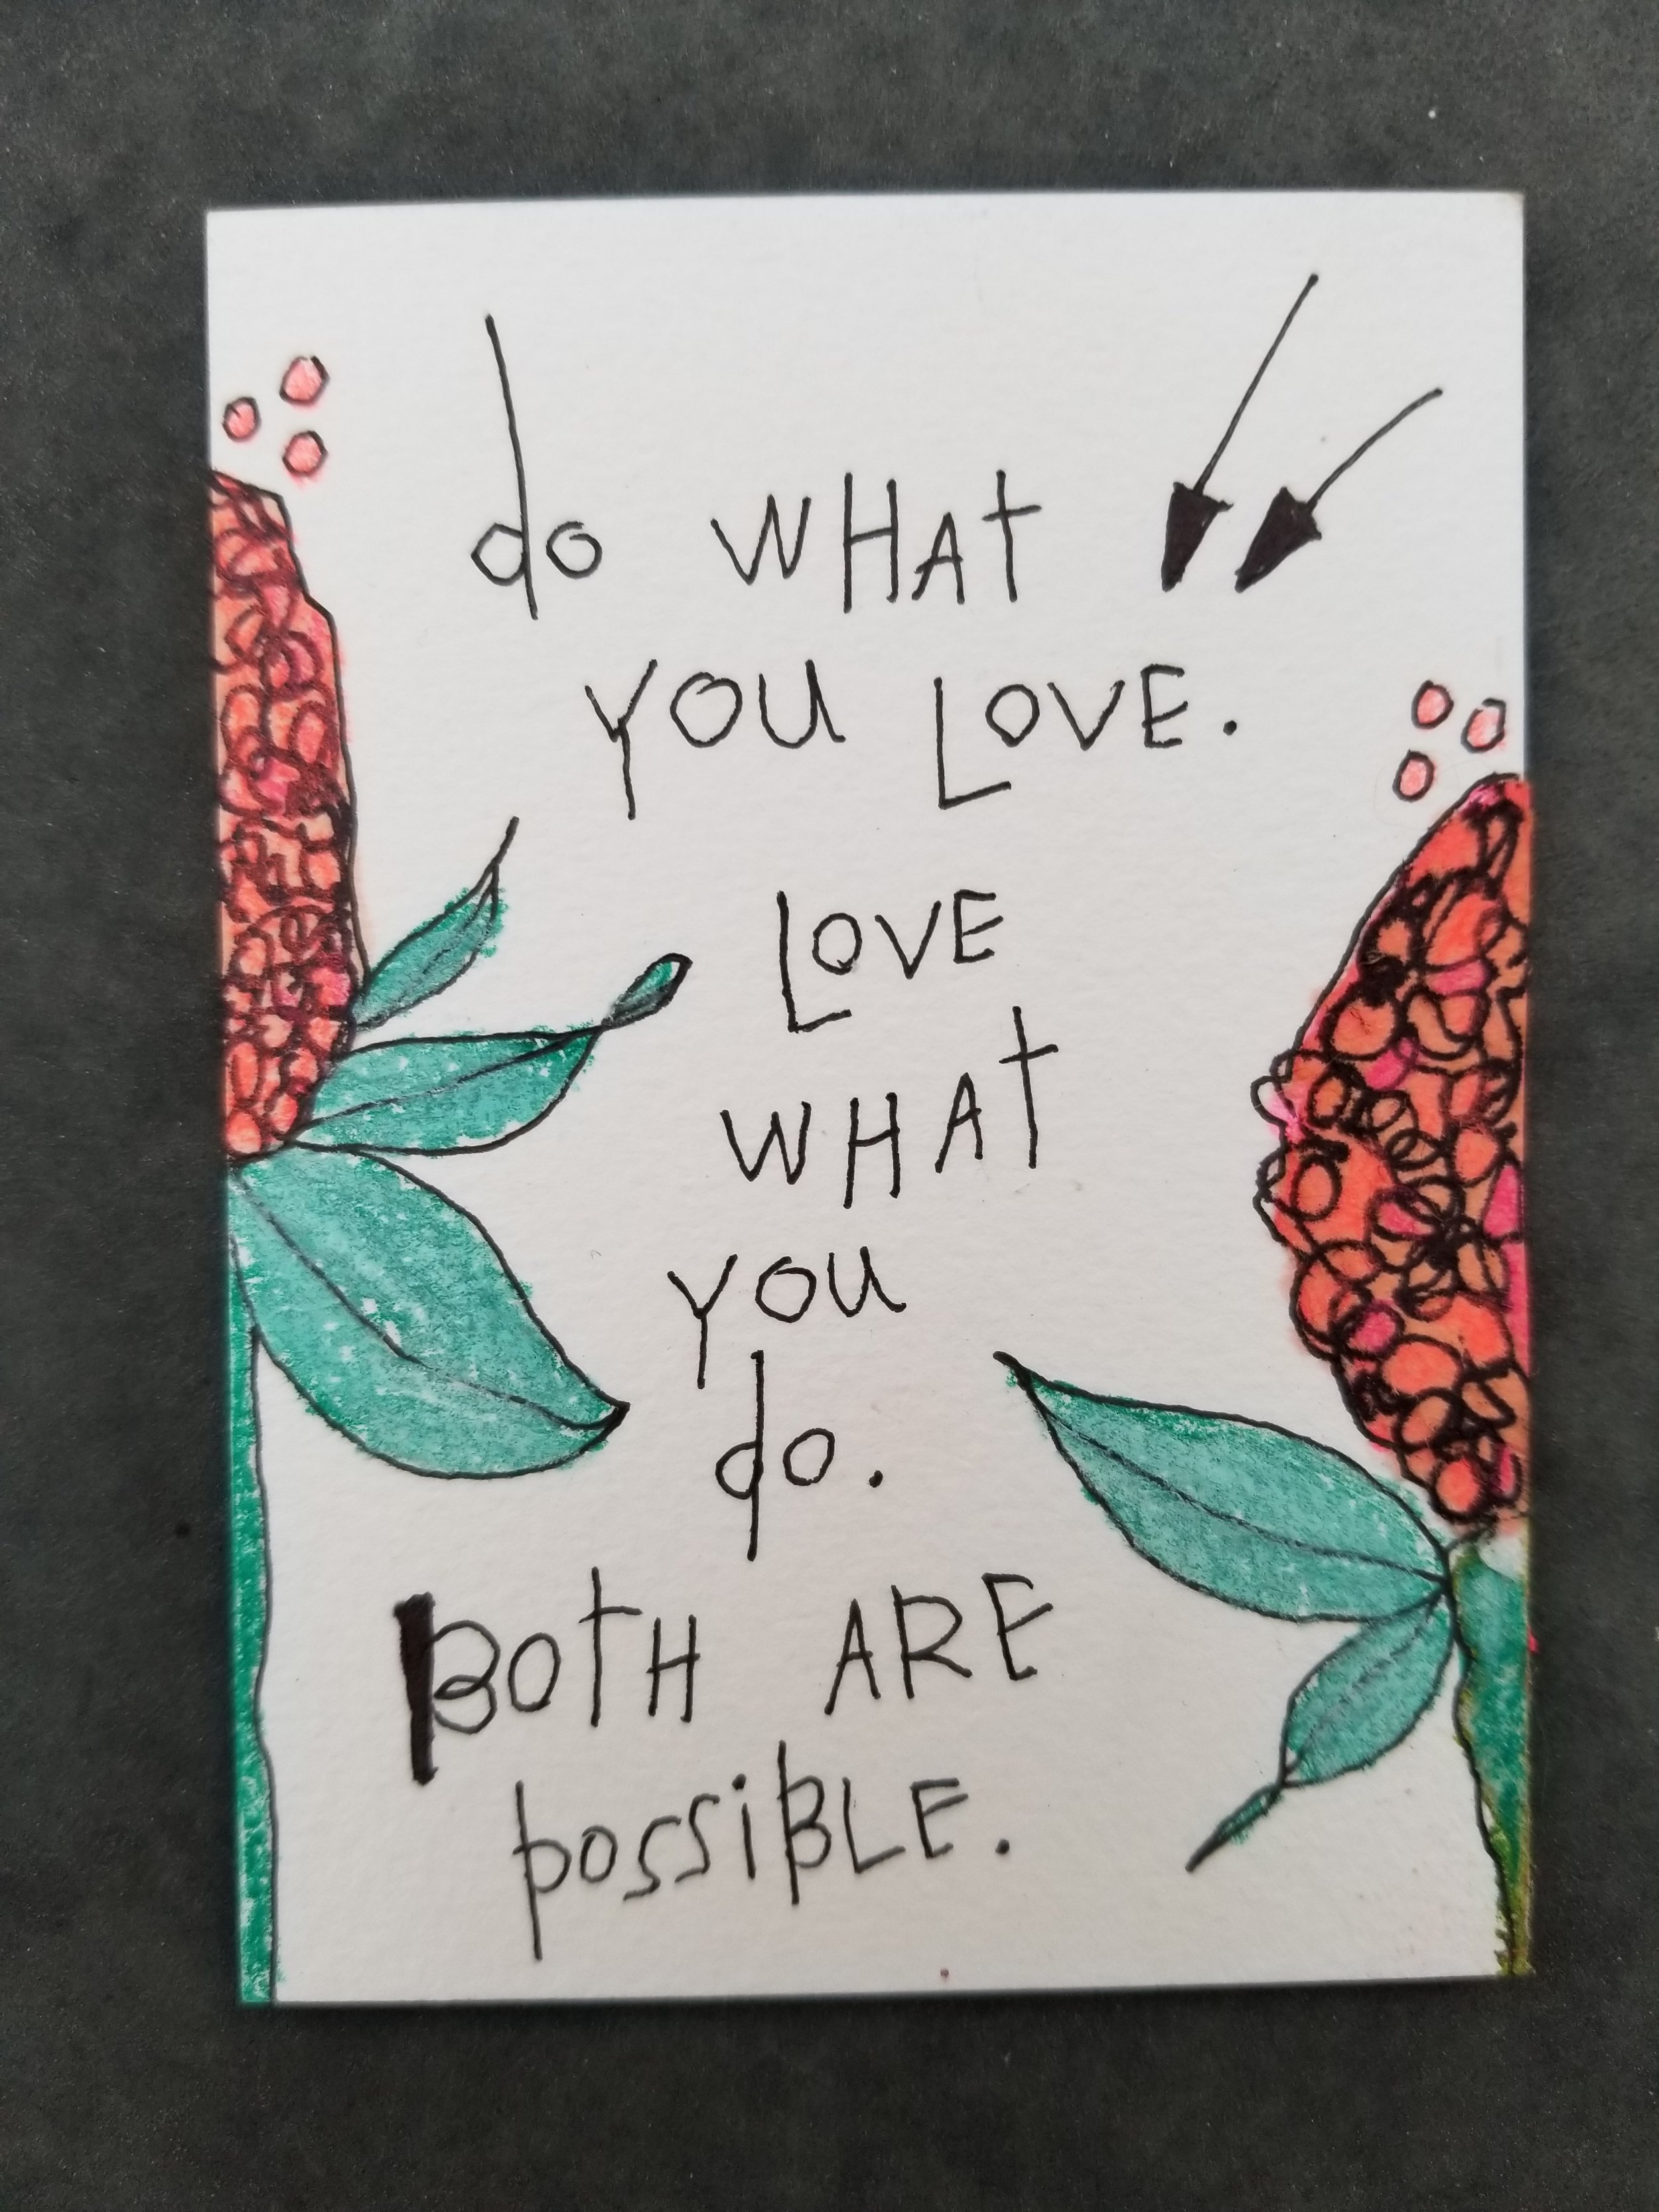 do WHAt
YOU LOVE.
LOVE
WHAt
YOU
do.
BOtH ARE
possiBLE.